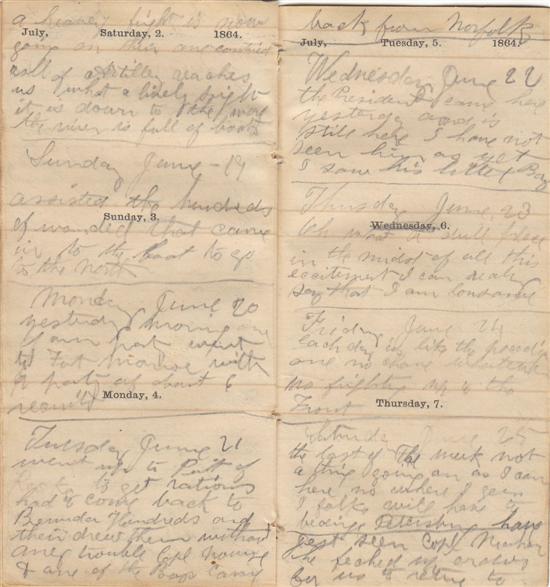 a heavy fight is now
July, Saturday, 2. 1864.
going on their one continual
roll of artillery reaches
us what a lively sight
it is down to the
the river is full of boats
Sunday June - 19
assisted the hundreds
Sunday, 3.
of wounded that came
in to the boat to go
to the North
Monday June 20
yesterday morning
I am part went
to Fort with
a party of about 6
Monday, 4.
Tuesday June 21
went up to Point of
to get rations
had to come back to
Bermuda Hundreds and
their drew them without
any trouble Corpl
& one of the Boys came
back from Norfolk
July, Tuesday, 5. 1864.
Wednesday June 22
the President came here
yesterday and is
still here I have not
seen him as yet
I saw his little Boy
Thursday June 23
Wednesday, 6.
Oh what a dull place
in the midst of all this
excitement I can realy
say that I am lonsame
Friday June 24
Each day is like the
one no change
no fighting up to the
Front
Thursday, 7.
Saturday June 25
the last of the week not
a thing going on as I can
here no where I gess
I folks will have to
besiege Petersburg have
yest seen Corpl
he feched up orders
for us to return to